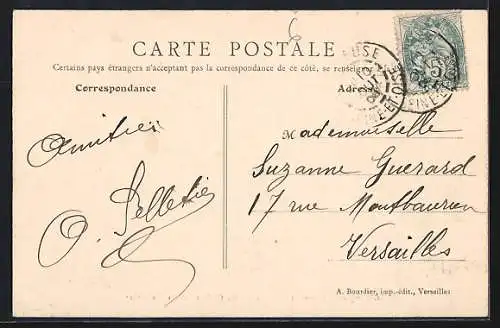 6
CARTE POSTALE
Certains pays étrangers n'acceptant pas la correspondance de ce côté, se renseigner
Correspondance
Adresse
Amitiés
O. Pelletier
Mademoiselle
Suzanne Guerard
17 rue Montbauron
Versailles
A. Bourdier, imp.-édit., Versailles